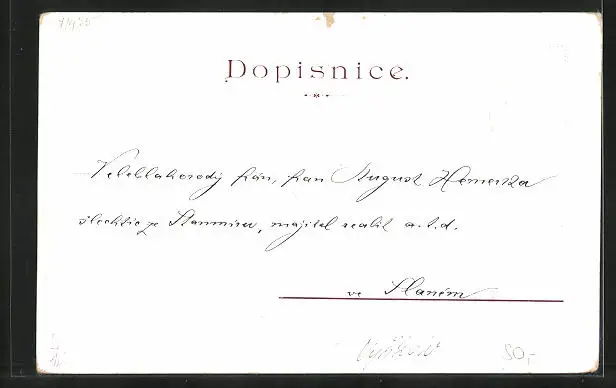 Dopisnice.
Veleblahorodý pán, pan August Hemerka
šlechtic z Stanmiru, majitel realit a.t.d.
ve Slaném
50,-